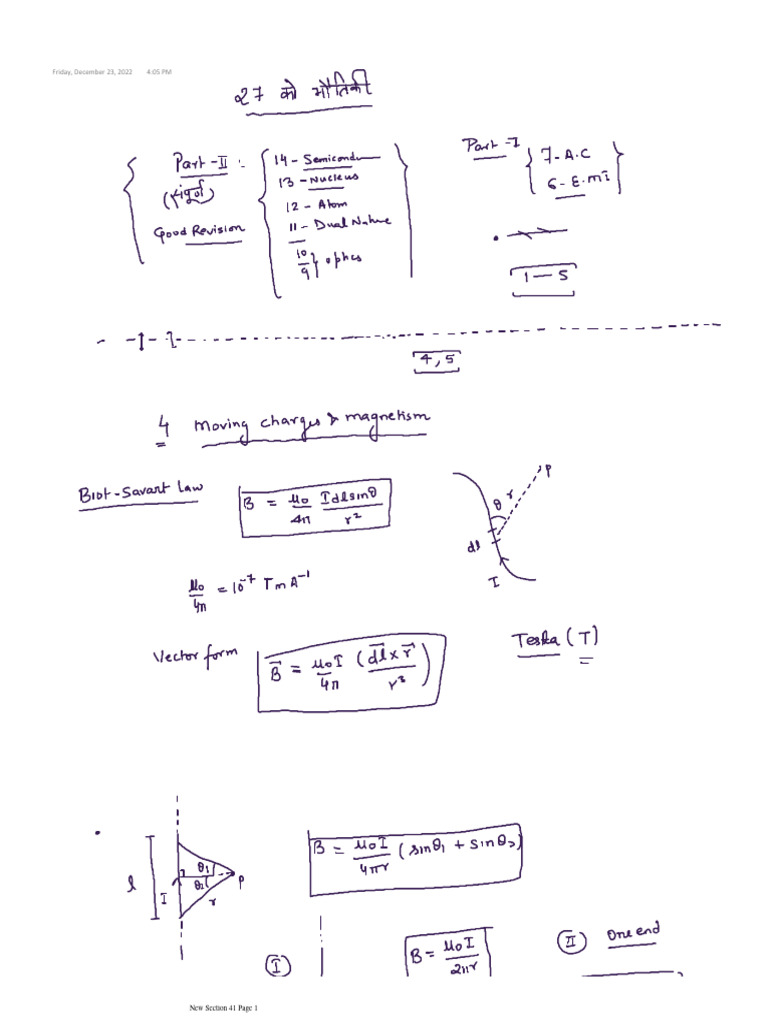 Friday, December 23, 2022 4:05 PM
27 को भौतिकी
Part-II :
Good Revision
14 - Semicondu
13 - Nucleus
12 - Atom
11 - Dual Nature
10
9 } optics
Part-I
7 - A.C
6 - E.mI
1 — 5
4, 5
4 Moving charges & magnetism
Biot-Savart law
B = μ₀/4π Idlsinθ/r²
P
r
θ
dl
I
μ₀/4π = 10⁻⁷ TmA⁻¹
Vector form
B⃗ = μ₀I/4π (d⃗l × r⃗/r³)
Tesla (T)
l
I
θ₁
θ₂
r
P
B = μ₀I/4πr (sinθ₁ + sinθ₂)
I
B = μ₀I/2πr
II One end
New Section 41 Page 1